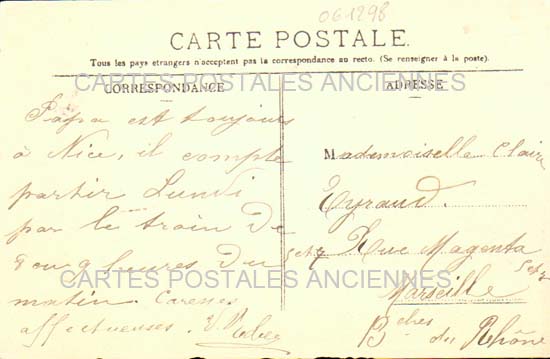 061298
CARTE POSTALE.
Tous les pays étrangers n'acceptent pas la correspondance au recto. (Se renseigner à la poste).
CARTES POSTALES ANCIENNES
CORRESPONDANCE
ADRESSE
Papa est toujours
à Nice, il compte
partir Lundi
par le train de
8 ou 9 heures du
matin. Caresses
affectueuses.
Mademoiselle Claire
Eyraud.
7 Rue Magenta
Marseille
Bches du Rhône
CARTES POSTALES ANCIENNES